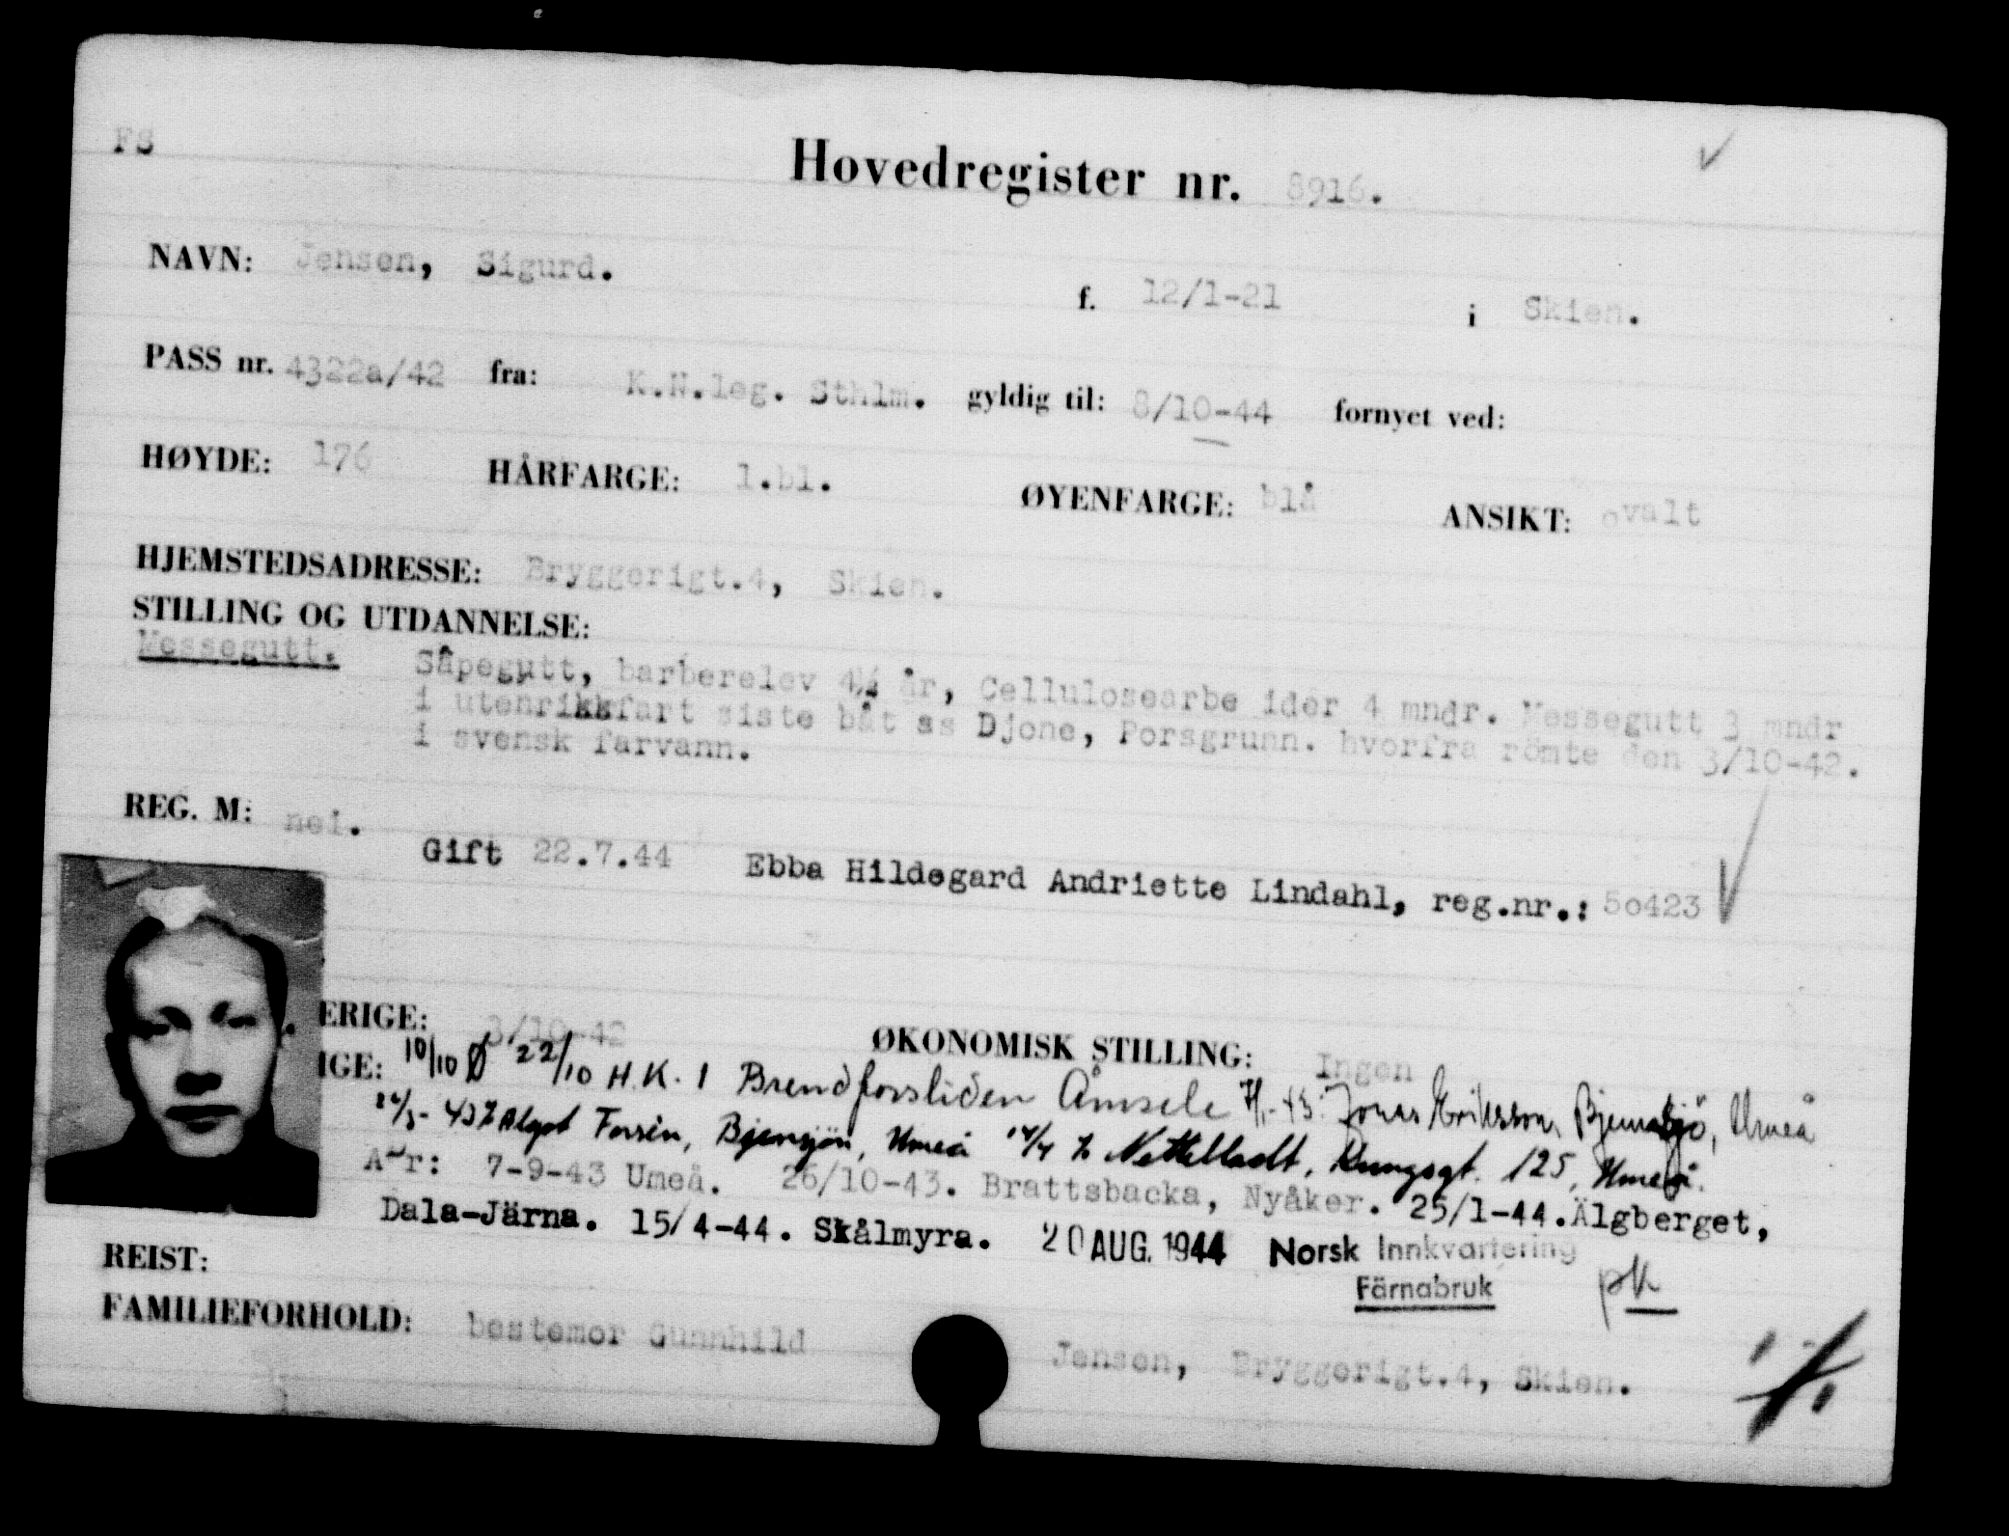 FS
Hovedregister nr. 8916.
NAVN: Jensen, Sigurd. f. 12/1-21 i Skien.
PASS nr. 4322a/42 fra: K.N.leg. Sthlm. gyldig til: 8/10-44 fornyet ved:
HØYDE: 176 HÅRFARGE: l.bl. ØYENFARGE: blå ANSIKT: ovalt
HJEMSTEDSADRESSE: Bryggerigt.4, Skien.
STILLING OG UTDANNELSE:
Messegutt. Såpegutt, barberelev 4½ år, Cellulosearbe ider 4 mndr. Messegutt 3 mndr
i utenriksfart siste båt ss Djone, Porsgrunn. hvorfra römte den 3/10-42.
i svensk farvann.
REG. M: nei.
Gift 22.7.44 Ebba Hildegard Andriette Lindahl, reg.nr.: 50423
ERIGE: 3/10-42 ØKONOMISK STILLING: Ingen
IGE: 10/10 Ø 22/10 H.K. 1 Brendforsliden Åmsele Jonas Eriksson, Bjennsjö, Umeå
Algot Forsén, Bjensjön, Umeå 14/4 Nettelbladt, Kungsgt. 125, Umeå.
7-9-43 Umeå. 26/10-43. Brattsbacka, Nyåker. 25/1-44. Älgberget,
Dala-Järna. 15/4-44. Skålmyra. 20 AUG. 1944 Norsk Innkvartering
Färnabruk pk
REIST:
FAMILIEFORHOLD: bestemor Gunnhild Jensen, Bryggerigt.4, Skien.